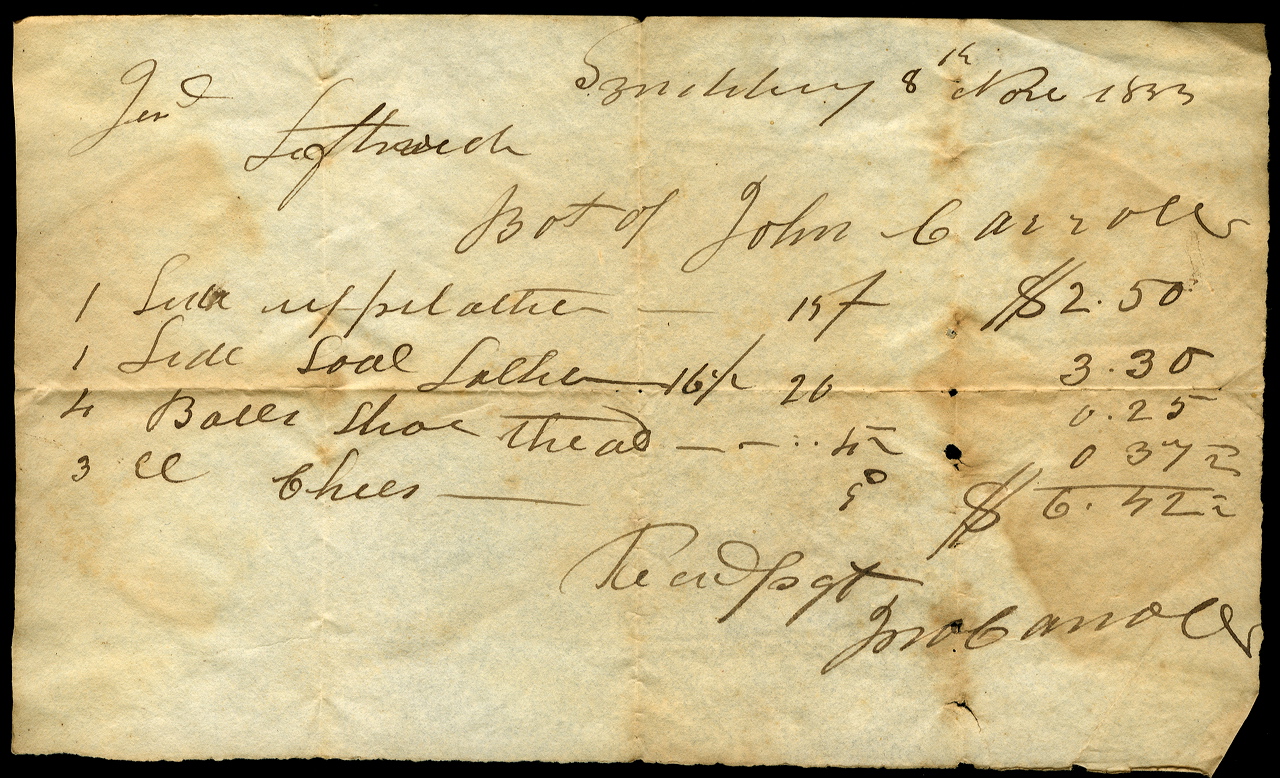 Lynchburg 8th Nove 1833
Jen'l
Leftwich
Bot of John Carroll
1 Side upper leather — 15/ $2.50
1 Side Soal Leather 16½ 20 3.30
4 Balls Shoe thread — - 0.25
3 Chees — 0 37½
$ 6.42½
Recd pyt
Jno Carroll